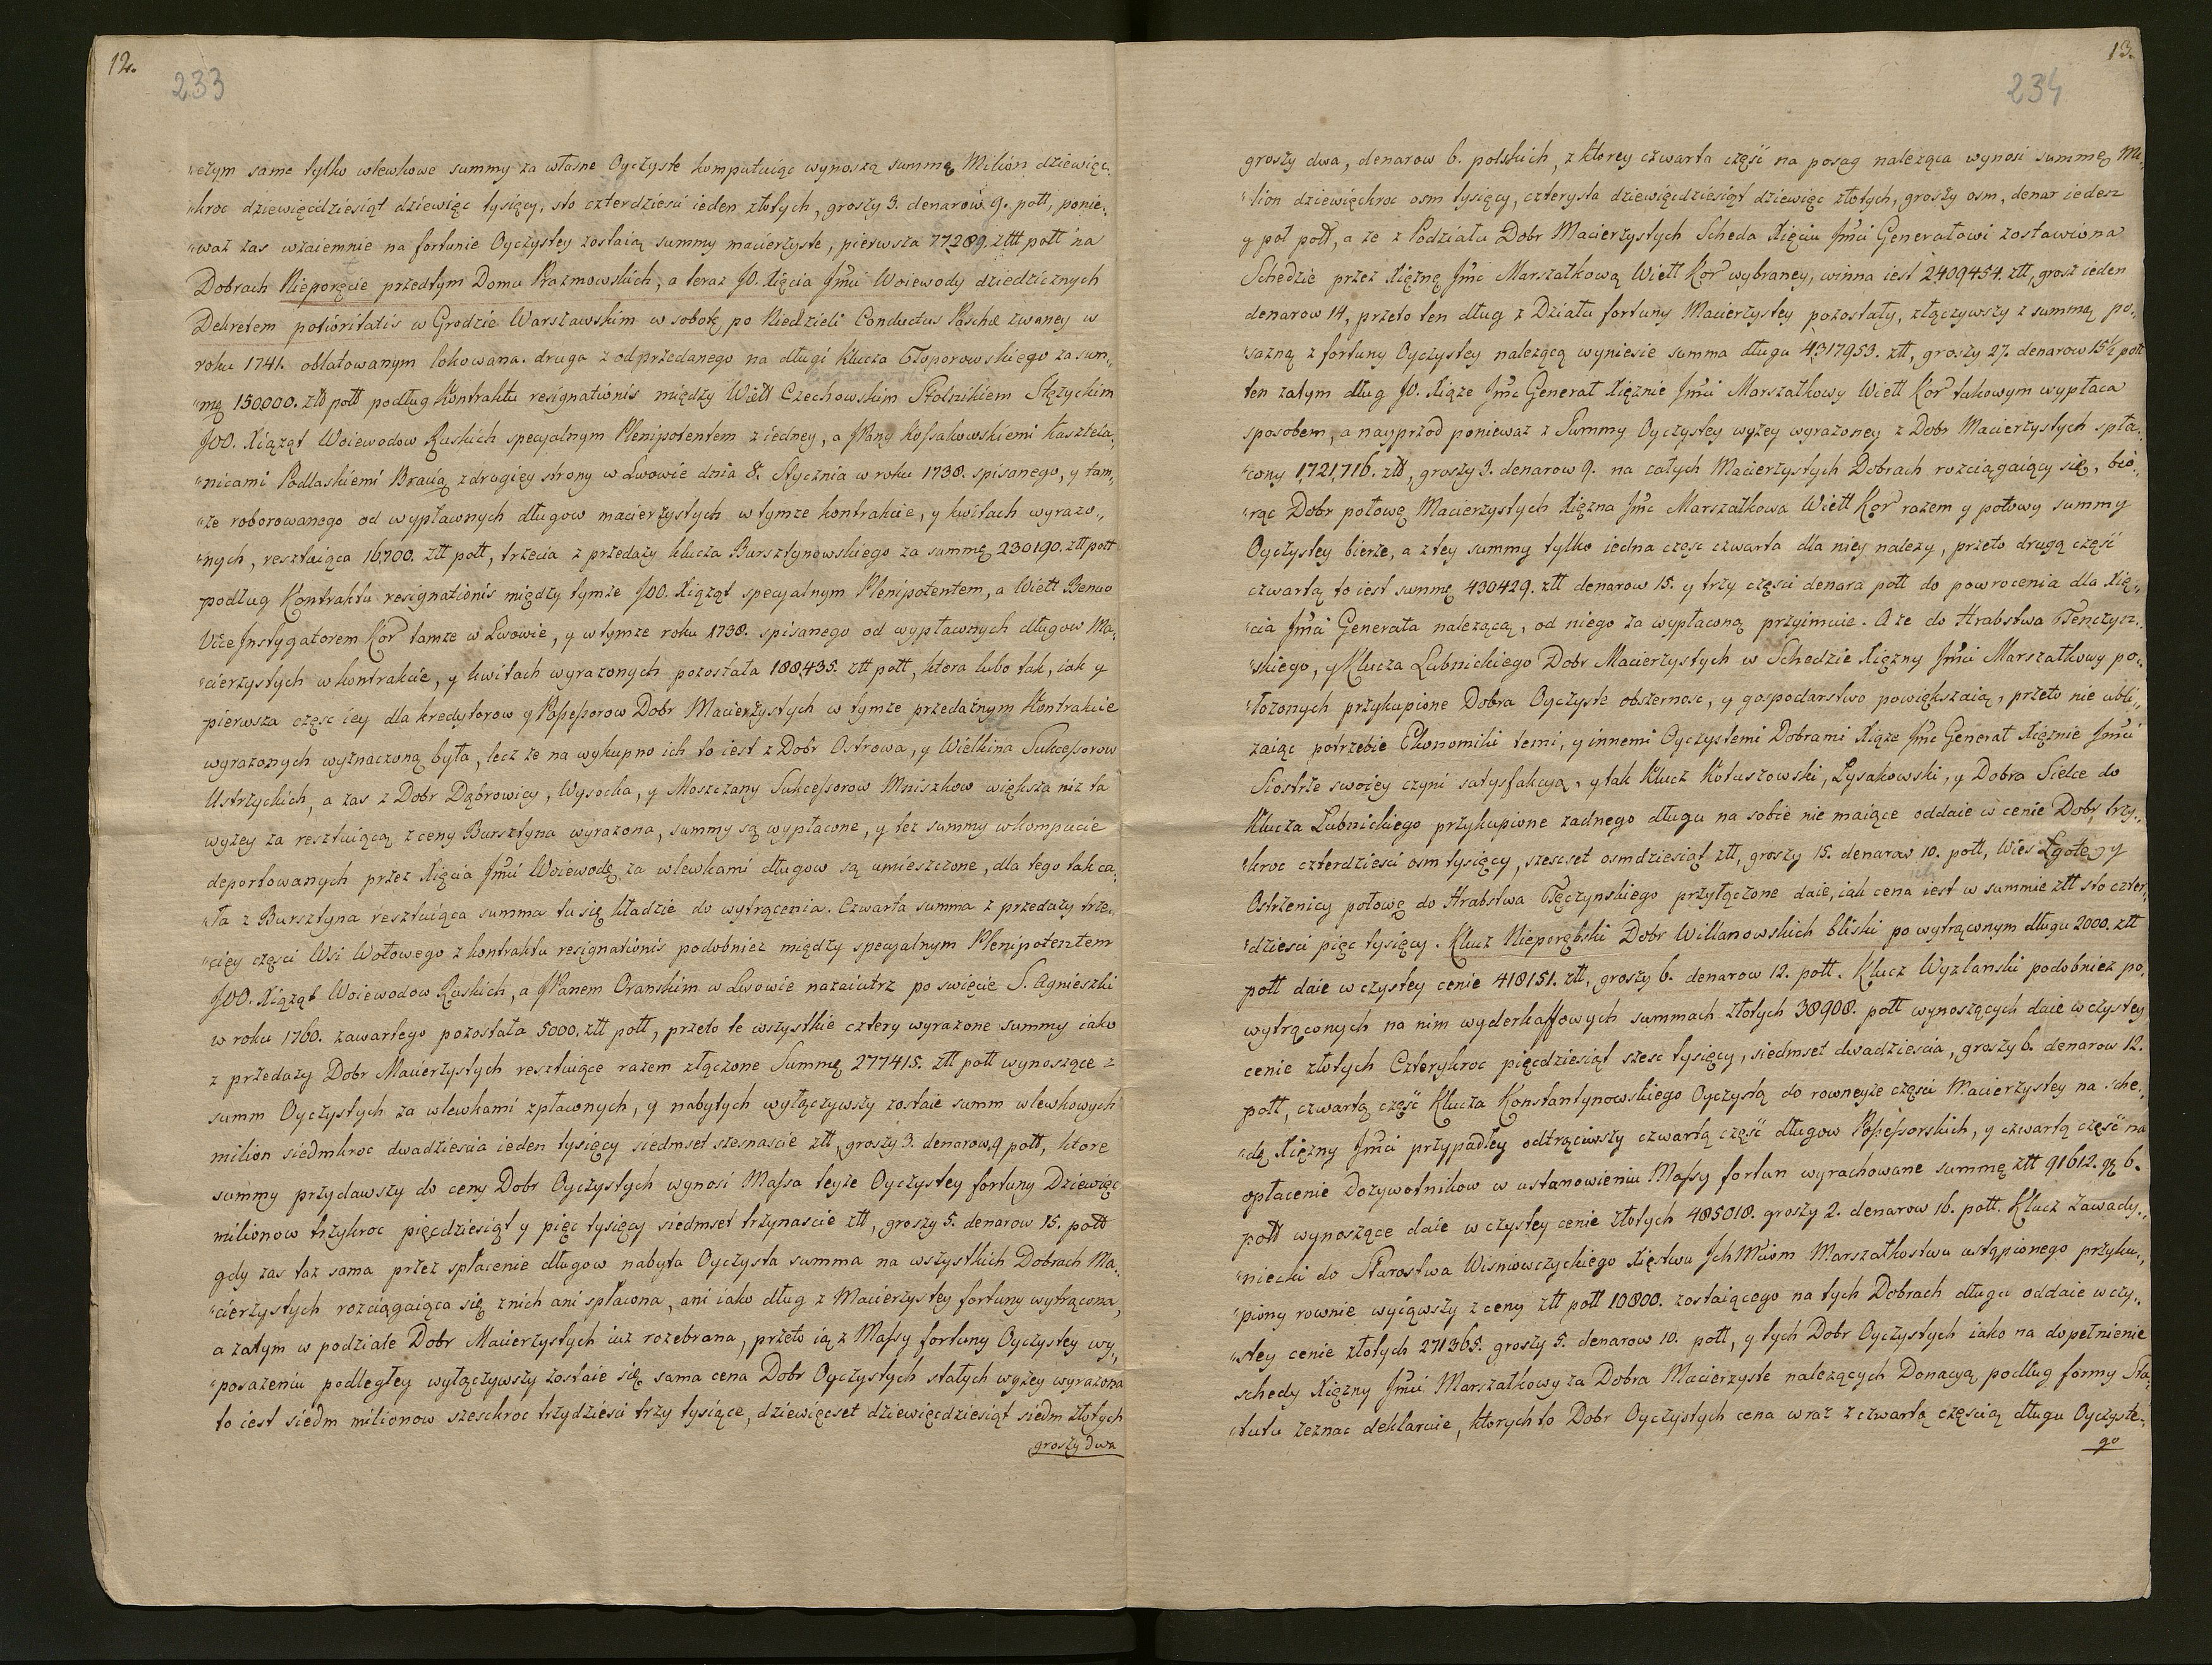 12.
233
„czym same tylko wlewkowe summy za własne Oyczyste komputuiąc wynoszą summę Milion dziewięc„
„kroc dziewięcdziesiąt dziewięc tysięcy, sto czterdziesci ieden złotych, groszy 3. denarow. 9. poll, ponie„
„waz zas wzaiemnie na fortunie Oyczystey zostaią summy macierzyste, pierwsza 77289. złtt poll na
Dobrach Nieporęcie przedtym Domu Prazmowskich, a teraz JO. Xięcia Jmci Woiewody dziedzicznych
Dekretem potioritatis w Grodzie Warszawskim w sobotę po Niedzieli Conductus Paschæ zwaney w
roku 1741. oblatowanym lokowana. druga z odprzedanego na długi Klucza Toporowskiego za sum„
„mę 150000. złł poll podług Kontraktu resignationis między Wiell Czechowskim Stolnikiem Stęzyckim
JOO. Xiąząt Woiewodow Ruskich specyalnym Plenipotentem z iedney, a JPany Kossakowskiemi Kasztela„
„nicami Podlaskiemi Bracią z drugiey strony w Lwowie dnia 8. Stycznia w roku 1738. spisanego, y tam„
„ze roborowanego od wypłacnych długow macierzystych w tymze kontrakcie, y kwitach wyrazo„
„nych, resztuiąca 16700. złł poll, trzecia z przedazy klucza Bursztynowskiego za summę 230190. złł poll
podług Kontraktu resignationis między tymze JOO. Xiąząt specyalnym Plenipotentem, a Wiell Benoe
Vice Instygatorem Kor tamze w Lwowie, y w tymze roku 1738. spisanego od wypłacnych długow Ma„
„cierzystych w kontrakcie, y kwitach wyrazonych pozostała 188435. złł poll, ktora lubo tak, iak y
pierwsza częsc iey dla kredytorow y Possessorow Dobr Macierzystych w tymze przedaznym Kontrakcie
wyrazonych wyznaczoną była, lecz ze na wykupno ich to iest z Dobr Ostrowa, y Wielkina Sukcessorow
Ustrzyckich, a zas z Dobr Dąbrowicy, Wysocka, y Moszczany Sukcessorow Mniszkow większa niz ta
wyzey za resztuiącą z ceny Bursztyna wyrazona, summy są wypłacone, y tez summy w kompucie
deportowanych przez Xięcia Jmci Woiewodę za wlewkami długow są umieszczone, dla tego tak ca„
„ła z Bursztyna resztuiąca summa tu się kładzie do wytrącenia. Czwarta summa z przedazy trze„
„ciey częsci Wsi Wołowego z kontraktu resignationis podobniez między specyalnym Plenipotentem
JOO. Xiąząt Woiewodow Ruskich, a JPanem Oranskim w Lwowie nazaiutrz po swięcie S. Agnieszki
w roku 1760. zawartego pozostała 5000. złł poll, przeto te wszystkie cztery wyrazone summy iako
z przedazy Dobr Macierzystych resztuiące razem złączone Summę 277415. złł poll wynoszące z
summ Oyczystych za wlewkami zpłaconych, y nabytych wyłączywszy zostaie summ wlewkowych
milion siedmkroc dwadziescia ieden tysięcy siedmset szesnascie złł, groszy 3. denarow 9 poll, ktore
summy przydawszy do ceny Dobr Oyczystych wynosi Massa teyze Oyczystey fortuny Dziewięc
milionow trzykroc pięcdziesiąt y pięc tysięcy siedmset trzynascie złł, groszy 5. denarow 15. poll
gdy zas taz sama przez spłacenie długow nabyta Oyczysta summa na wszystkich Dobrach Ma„
„cierzystych rozciągaiąca się z nich ani spłacona, ani iako dług z Macierzystey fortuny wytrącona,
a zatym w podziale Dobr Macierzystych iuz rozebrana, przeto ią z Massy fortuny Oyczystey wy„
„posazeniu podległey wyłączywszy zostaie się sama cena Dobr Oyczystych stałych wyzey wyrazona
to iest siedm milionow szesckroc trzydziesci trzy tysiące, dziewięcset dziewięcdziesiąt siedm złotych
groszy dwa
13.
234
groszy dwa, denarow 6. polskich, z ktorey czwarta część na posag naleząca wynosi summę Mi„
„lion dziewięckroc osm tysięcy, czterysta dziewięcdziesiąt dziewięc złotych, groszy osm, denar ieden
y poł poll, a ze z Podziału Dobr Macierzystych Scheda Xięciu Jmci Generałowi zostawiona
Schedzie przez Xięznę Jmc Marszałkową Wiell Kor wybraney, winna iest 2409454. złł, grosz ieden
denarow 14, przeto ten dług z Działu fortuny Macierzystey pozostały, złączywszy z summą po„
„sazną z fortuny Oyczystey nalezącą wyniesie summa długu 4317953. złł, groszy 27. denarow 15½ poll
ten zatym dług JO. Xiąze Jmc Generał Xięznie Jmci Marszałkowy Wiell Kor takowym wypłaca
sposobem, a nayprzod poniewaz z Summy Oyczystey wyzey wyrazoney z Dobr Macierzystych spła„
„cony 1,721,716. złł, groszy 3. denarow 9. na całych Macierzystych Dobrach rozciągaiący się, bio„
„rąc Dobr połowę Macierzystych Xięzna Jmc Marszałkowa Wiell Kor razem y połowy summy
Oyczystey bierze, a z tey summy tylko iedna częsc czwarta dla niey nalezy, przeto drugą część
czwartą to iest summę 430429. złł denarow 15. y trzy częsci denara poll do powrocenia dla Xię„
„cia Jmci Generała nalezącą, od niego za wypłaconą przyimuie. A ze do Hrabstwa Tenczyn„
„skiego, y Klucza Lubnickiego Dobr Macierzystych w Schedzie Xięzny Jmci Marszałkowy po„
„łozonych przykupione Dobra Oyczyste obszernosc, y gospodarstwo powiększaią, przeto nie ubli„
zaiąc potrzebie Ekonomiki temi, y innemi Oyczystemi Dobrami Xiąze Jmc Generał Xięznie Jmci
Siostrze swoiey czyni satysfakcyą, y tak Klucz Kotuszowski, Łysakowski, y Dobra Sielce do
Klucza Lubnickiego przykupione zadnego długu na sobie nie maiące oddaie w cenie Dobr, trzy„
„kroc czterdziesci osm tysięcy, szescset osmdziesiąt złł, groszy 15. denarow 10. poll, Wieś Lgotę y
Ostrzenicy połowę do Hrabstwa Tęczynskiego przyłączone daie, iak cena iest w summie złł sto czter„
„dziesci pięc tysięcy. Klucz Nieporębski Dobr Willanowskich bliski po wytrąconym długu 2000. złł
poll daie w czystey cenie 418151. złł, groszy 6. denarow 12. poll. Klucz Wyzlanski podobniez po„
wytrąconych na nim wyderkaffowych summach złotych 38908. poll wynoszących daie w czystey
cenie złotych Czterykroc pięcdziesiąt szesc tysięcy, siedmset dwadziescia, groszy 6. denarow 12.
poll, czwartą część Klucza Konstantynowskiego Oyczystą do rowneyze częsci Macierzystey na sche„
„dę Xięzny Jmci przypadłey odtrąciwszy czwartą część długow Possessorskich, y czwartą część na
opłacenie Dozywotnikow w ustanowieniu Massy fortun wyrachowane summę złł 91612. gr 6.
poll wynoszące daie w czystey cenie złotych 485018. groszy 2. denarow 16. poll. Klucz Zawady„
„niecki do Starostwa Wisniowczyckiego Xięstwu Jch Mciom Marszałkostwu ustąpionego przyku„
„piony rownie wyiąwszy z ceny złł poll 10800. zostaiącego na tych Dobrach długu oddaie w czy„
„stey cenie złotych 271365. groszy 5. denarow 10. poll, y tych Dobr Oyczystych iako na dopełnienie
schedy Xięzny Jmci Marszałkowy za Dobra Macierzyste nalezących Donacyą podług formy Sta„
„tutu zeznac deklaruie, ktorych to Dobr Oyczystych cena wraz z czwartą częscią długu Oyczyste„
go